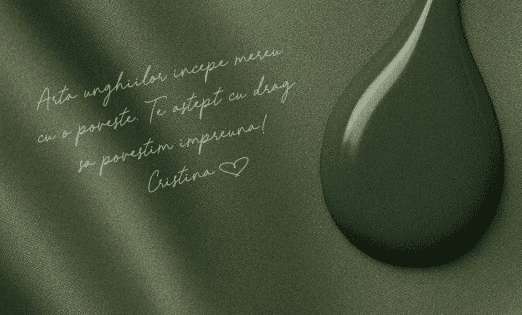 Arta unghiilor incepe mereu
cu o poveste. Te astept cu drag
sa povestim impreuna!
Cristina ♡